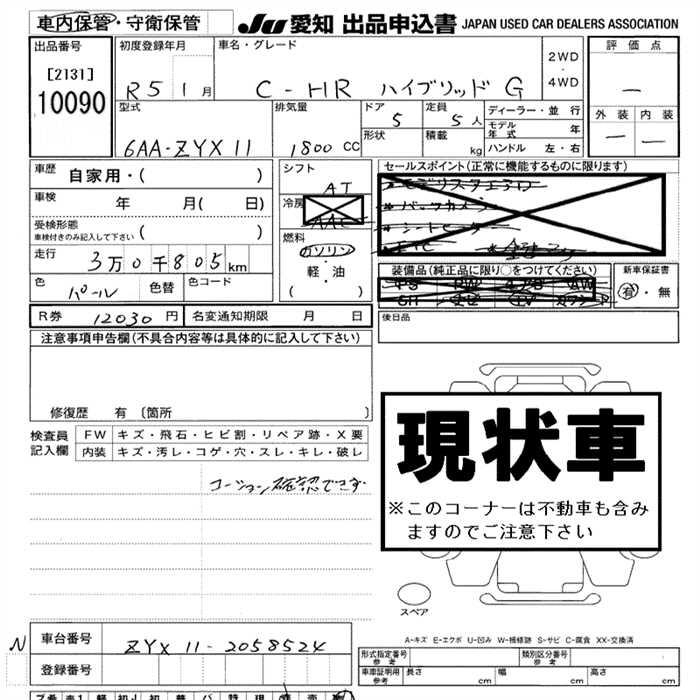 車内保管・守衛保管 JU 愛知 出品申込書 JAPAN USED CAR DEALERS ASSOCIATION
出品番号 初度登録年月 車名・グレード 評価点
[2131] R5 1月 C-HR ハイブリッド G 2WD・4WD —
10090
型式 排気量 ドア 定員 ディーラー・並行 外装 内装
6AA-ZYX11 1800 CC 5 5人 モデル年式 年 — —
形状 積載 kg ハンドル 左・右
車歴 自家用・( ) シフト セールスポイント(正常に機能するものに限ります)
AT
車検 年 月( 日) 冷房 AAC
バックカメラ
シートヒーター
受検形態 車検付きのみ記入して下さい ( ) 燃料 ETC
ガソリン・軽・油 ( )
走行 3万0千805km 装備品(純正品に限り○をつけてください) 新車保証書
PS PW AW 有・無
色 パール 色替 色コード SR ナビ TV
R券 12030円 名変通知期限 月 日 後日品
注意事項申告欄(不具合内容等は具体的に記入して下さい)
修復歴 有〔箇所 〕
検査員記入欄 FW キズ・飛石・ヒビ割・リペア跡・X要
内装 キズ・汚レ・コゲ・穴・スレ・キレ・破レ
コーション確認できず
現状車
※このコーナーは不動車も含み
ますのでご注意下さい
スペア
A-キズ E-エクボ U-凹み W-補修跡 S-サビ C-腐食 XX-交換済
N 車台番号 ZYX11-2058524 形式指定番号 参考 類別区分番号 参考
登録番号 車庫証明用 参考 長さ cm 幅 cm 高さ cm